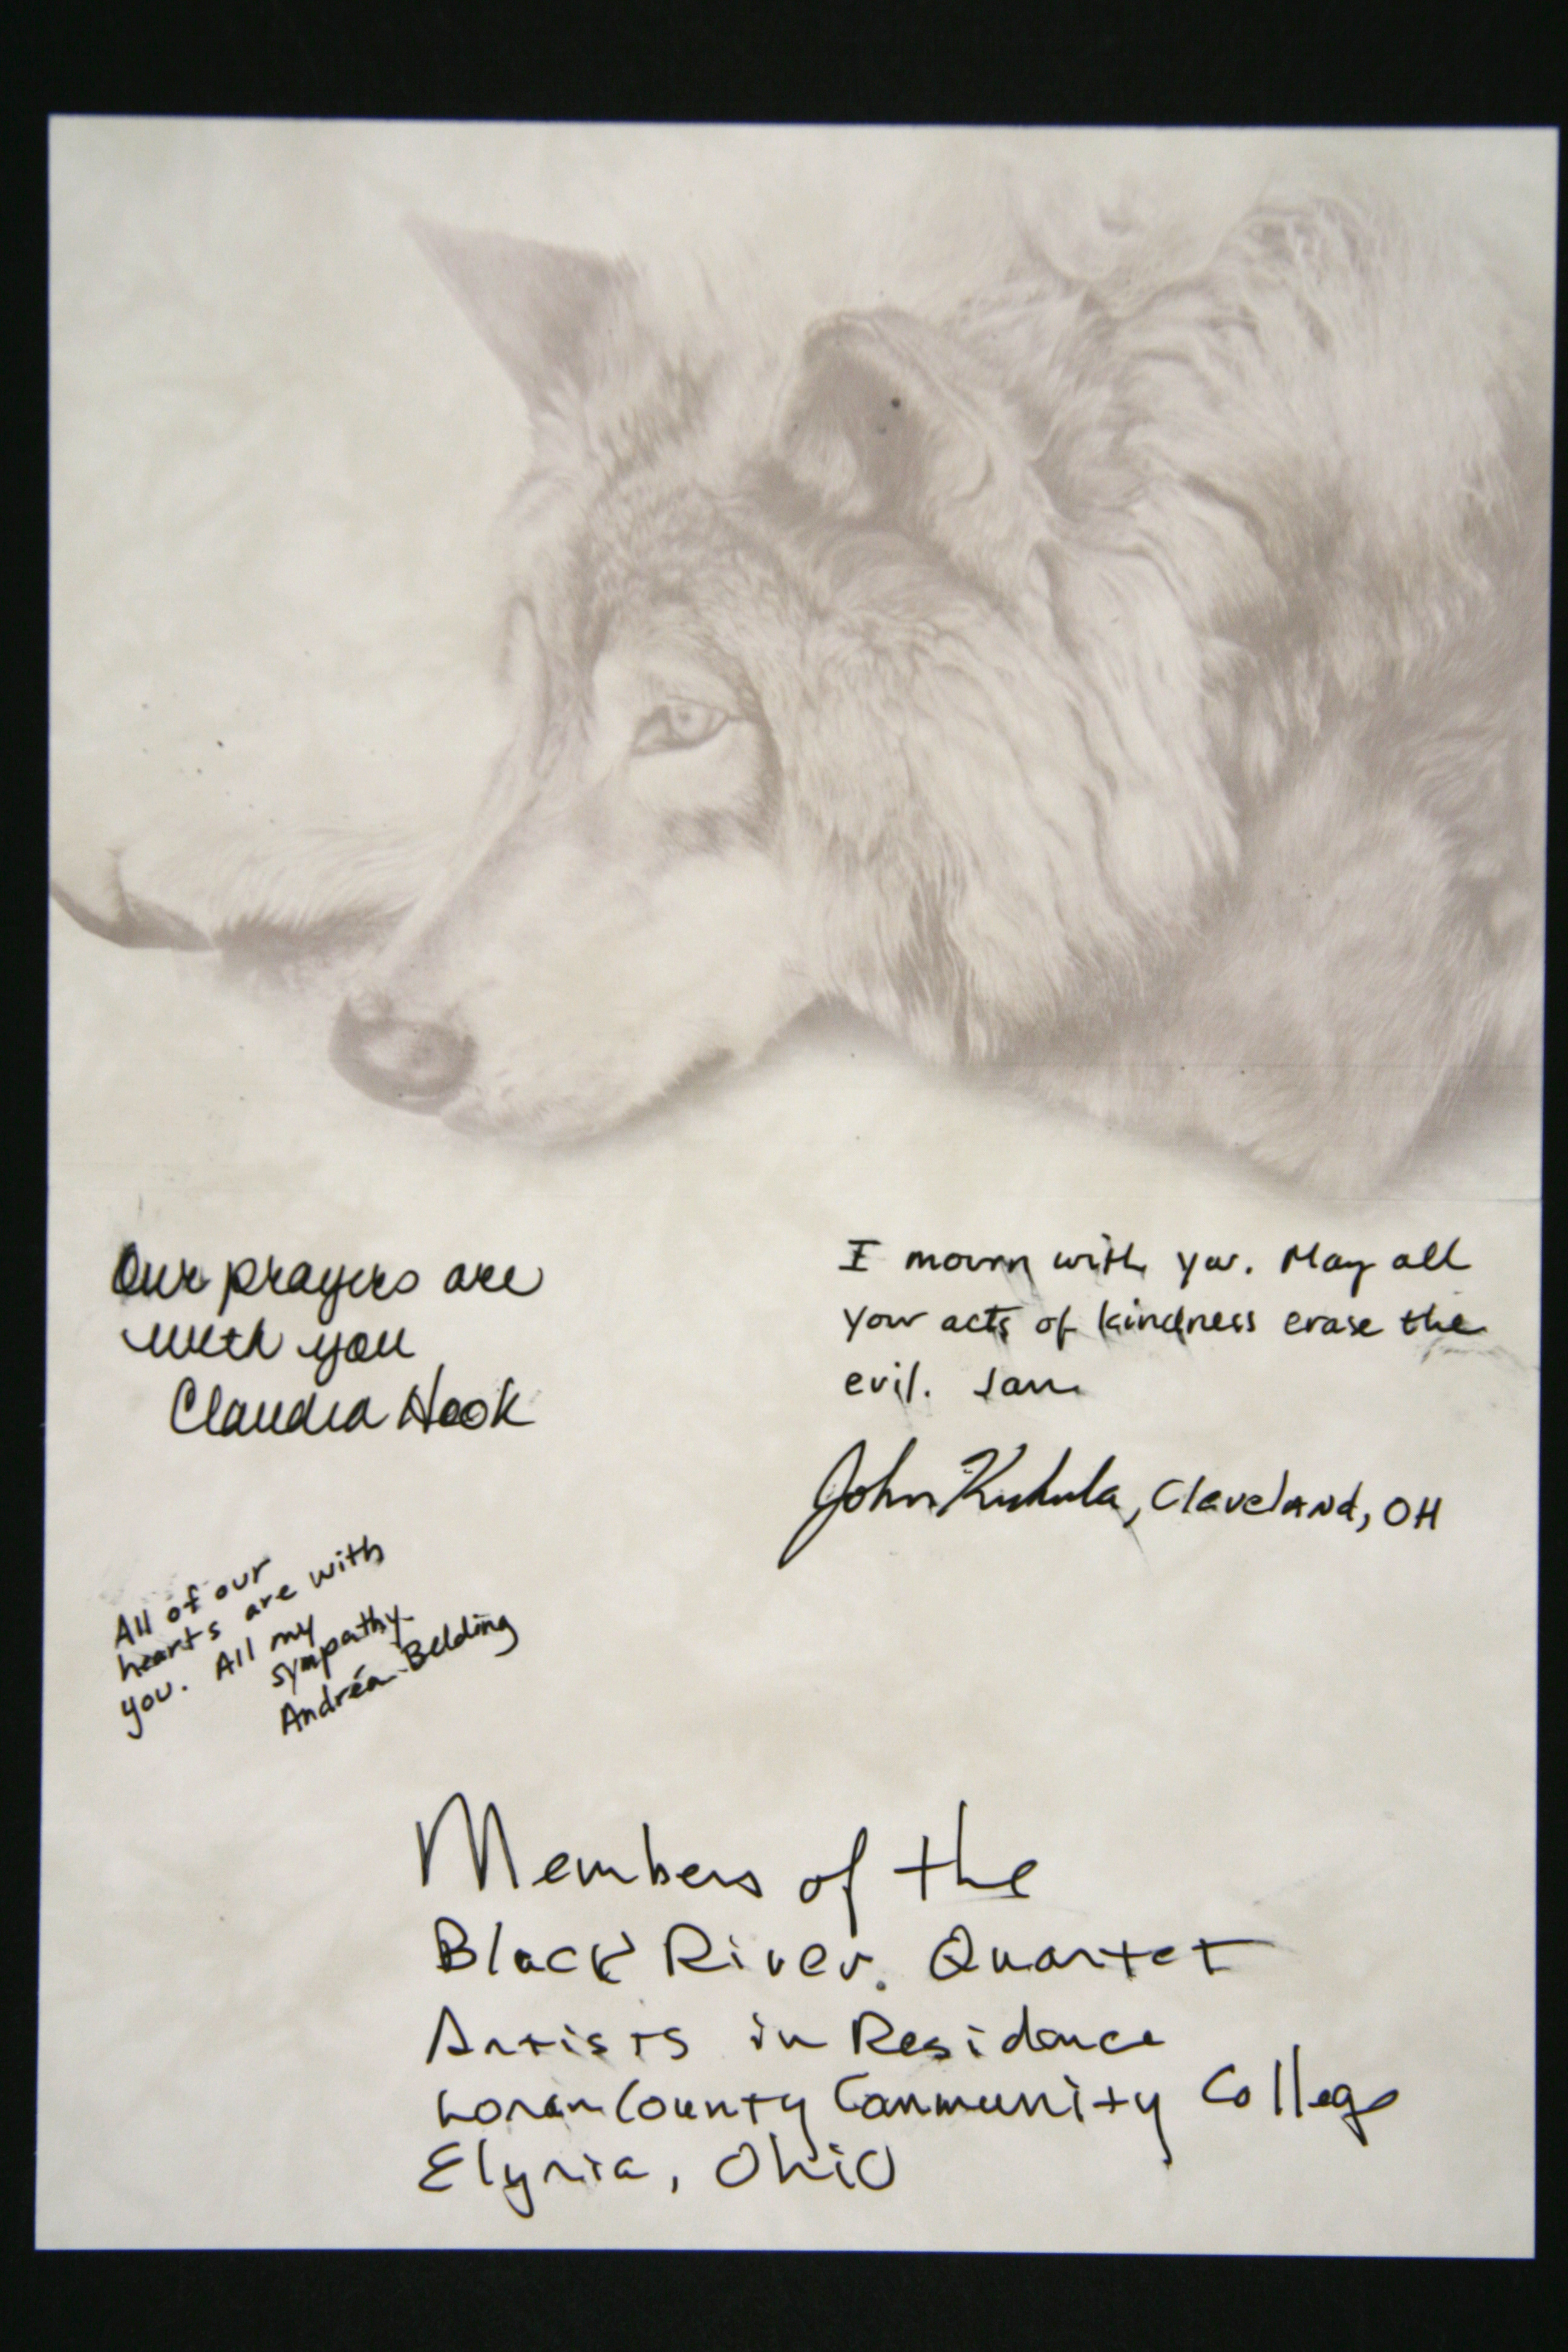 Our prayers are
with you
Claudia Hook
I mourn with you. May all
your acts of kindness erase the
evil.
John Kukula, Cleveland, OH
All of our
hearts are with
you. All my
sympathy
Andréa Belding
Members of the
Black River Quartet
Artists in Residence
Lorain County Community College
Elyria, Ohio